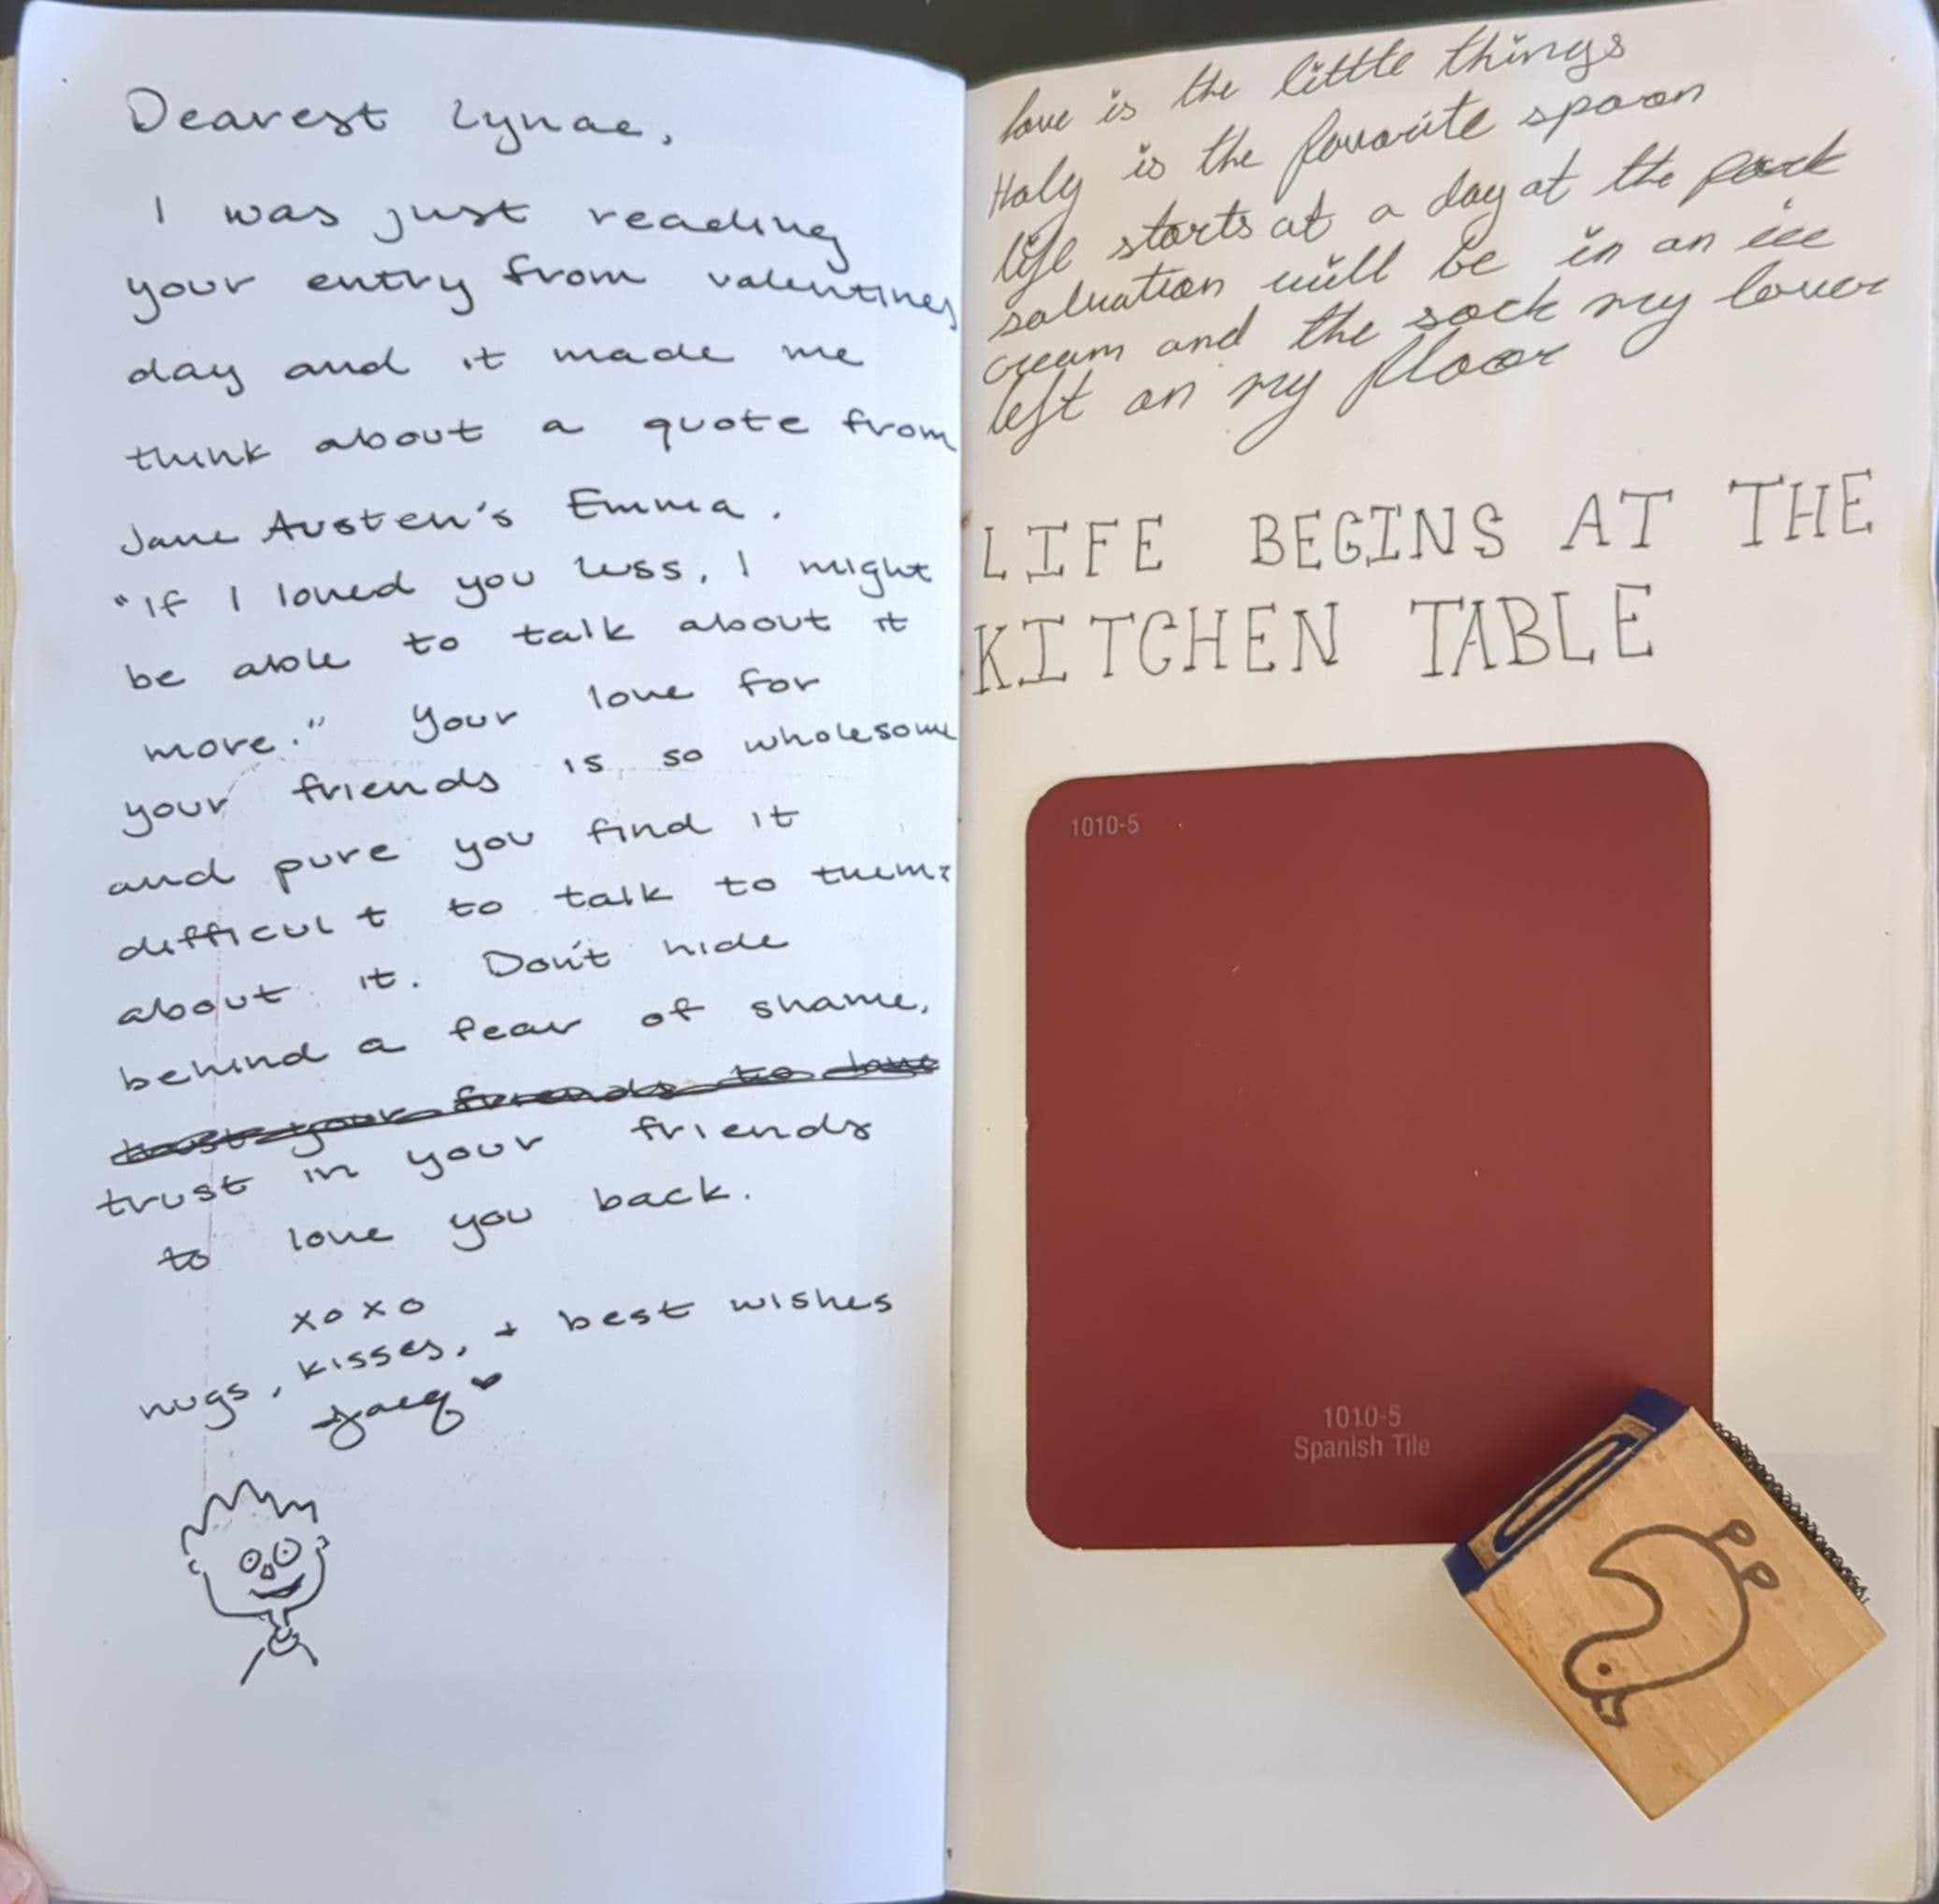 Dearest Lynae,
I was just reading
your entry from valentines
day and it made me
think about a quote from
Jane Austen's Emma.
"If I loved you less, I might
be able to talk about it
more." Your love for
your friends is so wholesome
and pure you find it
difficult to talk to them
about it. Don't hide
behind a fear of shame,
trust your friends to love
trust in your friends
to love you back.
xoxo
hugs, kisses, + best wishes
Jacq
love is the little things
Holy is the favorite spoon
life starts at a day at the park
salvation will be in an ice
cream and the sock my lover
left on my floor
LIFE BEGINS AT THE
KITCHEN TABLE
1010-5
1010-5
Spanish Tile